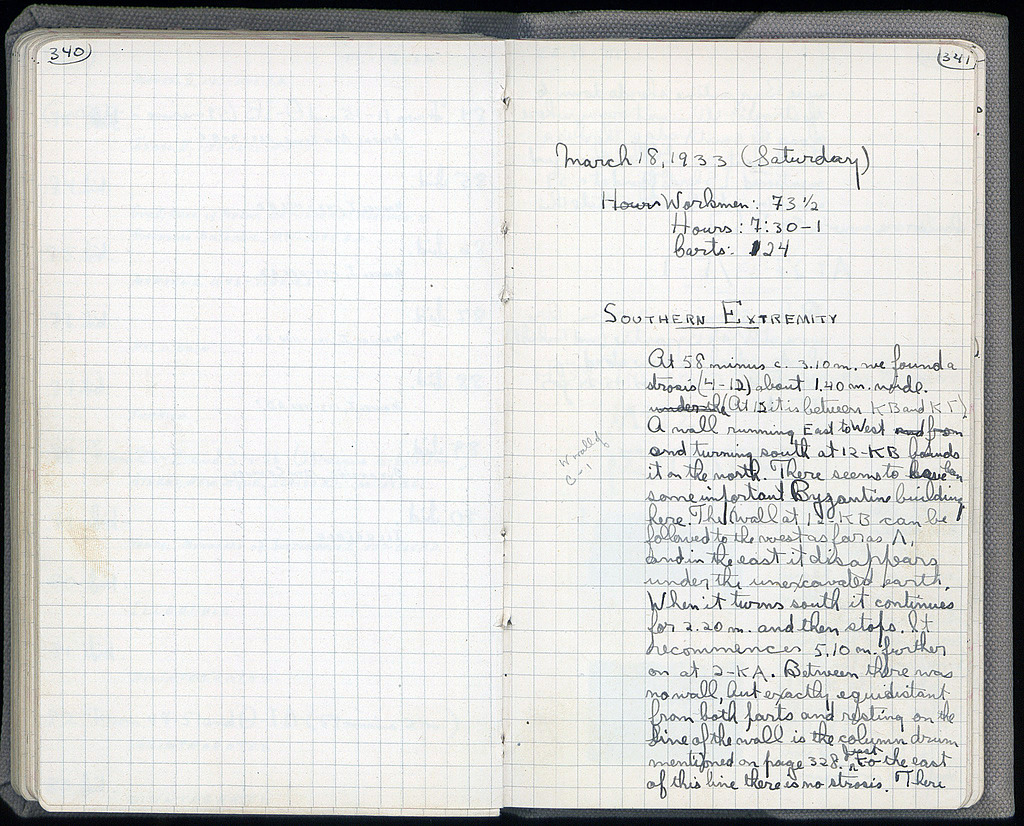 340
341
March 18, 1933 (Saturday)
Hours Workmen: 73 ½
Hours: 7:30-1
Carts: 24
SOUTHERN EXTREMITY
At 58 minus c. 3.10 m. we found a
strosis (4-12) about 1.40 m. wide.
under the (At 12 it is between KB and KΓ)
A wall running East to West and from
and turning south at 12-KB bounds
it on the north. There seems to have been
some important Byzantine building
here. The wall at 12-KB can be
followed to the west as far as Λ,
and in the east it disappears
under the unexcavated earth.
When it turns south it continues
for 2.20 m. and then stops. It
recommences 5.10 m. further
on at 2-KA. Between there was
no wall, but exactly equidistant
from both parts and resting on the
line of the wall is the column drum
mentioned on page 328. Just to the east
of this line there is no strosis. There
W wall of
C-1